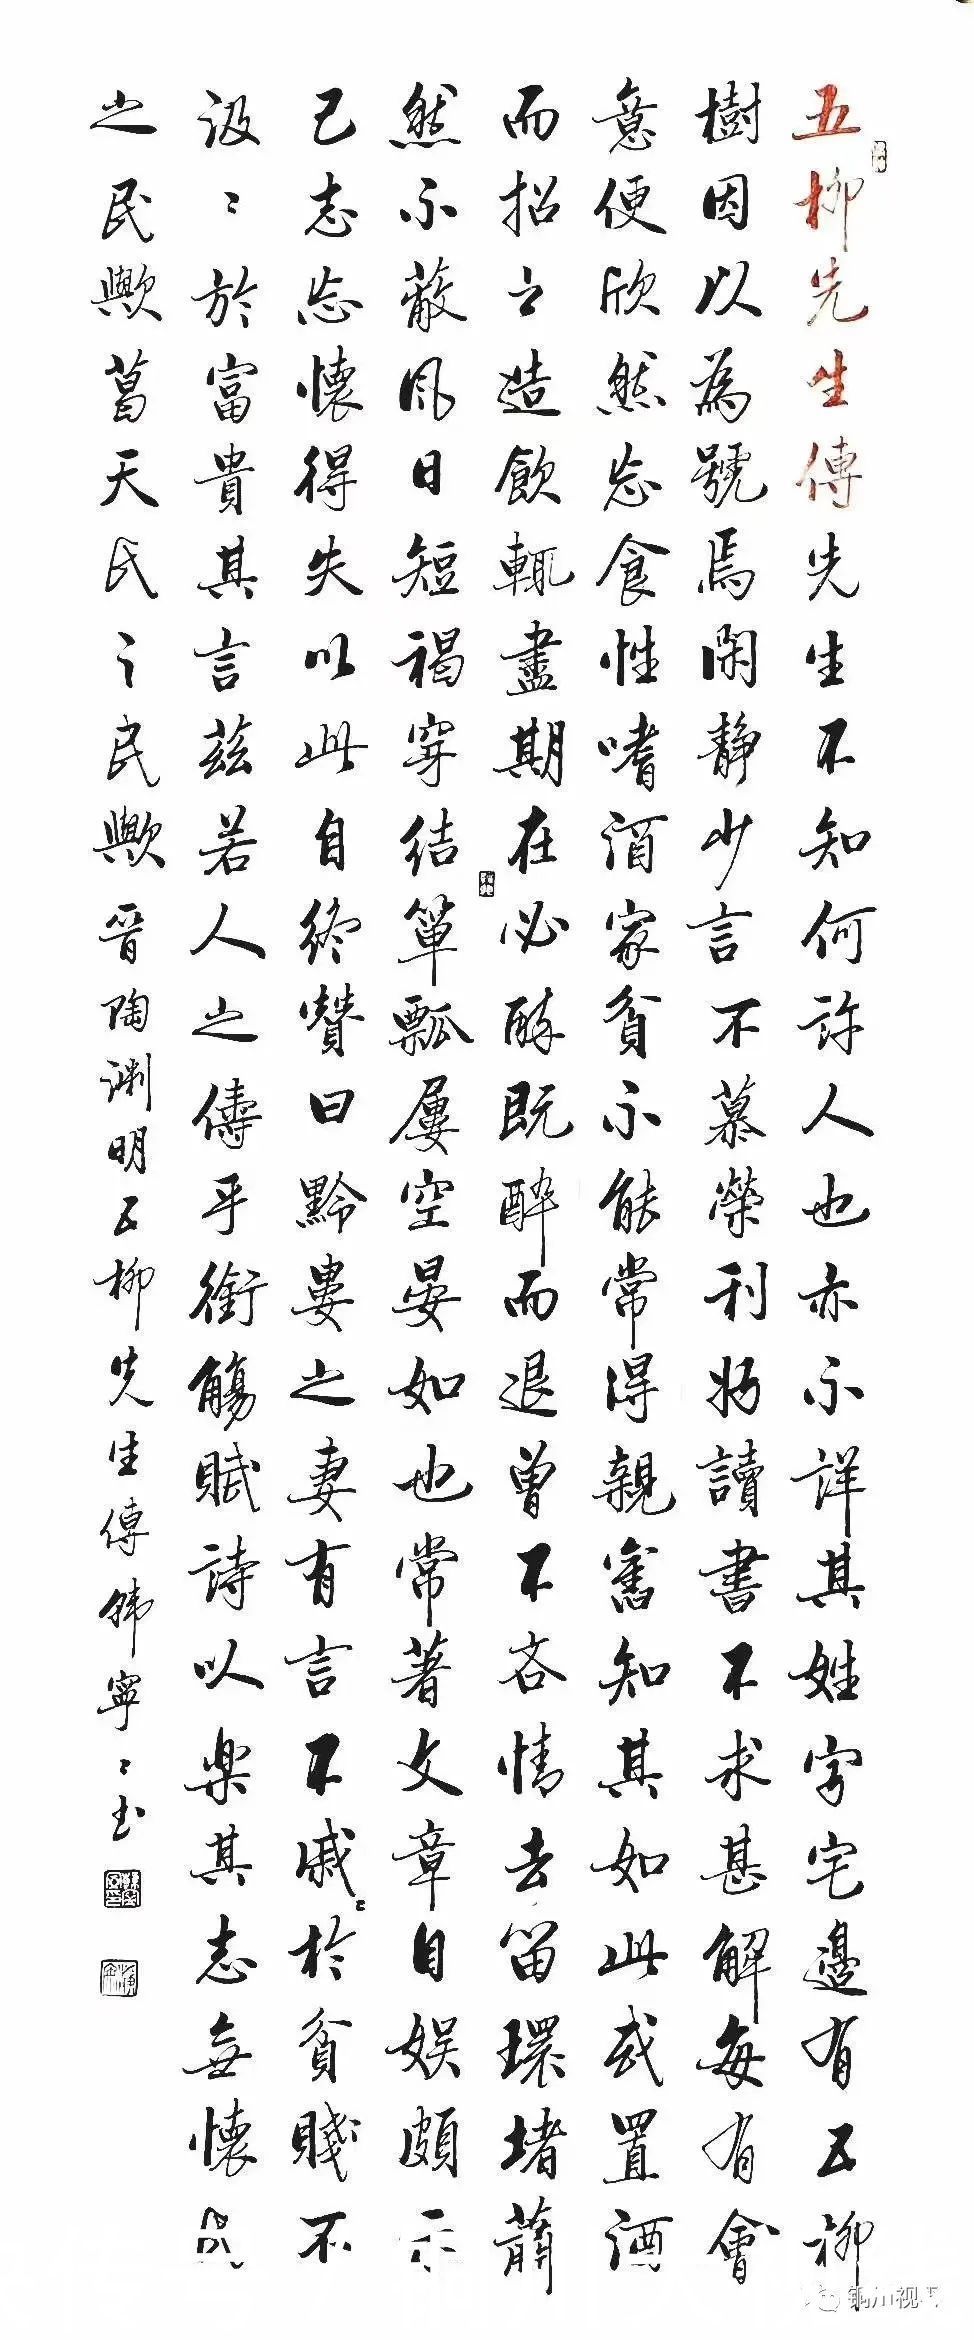 五柳先生傳先生不知何許人也亦不詳其姓字宅邊有五柳
樹因以為號焉閑静少言不慕榮利好讀書不求甚解每有會
意便欣然忘食性嗜酒家貧不能常得親舊知其如此或置酒
而招之造飲輒盡期在必酔既醉而退曾不吝情去留環堵蕭
然不蔽風日短褐穿結簞瓢屢空晏如也常著文章自娛頗示
己志忘懷得失以此自終贊曰黔婁之妻有言不戚〻於貧賤不
汲〻於富貴其言茲若人之儔乎銜觴賦詩以樂其志無懷氏
之民歟葛天氏之民歟晉陶淵明五柳先生傳韓寧〻書
铜川视